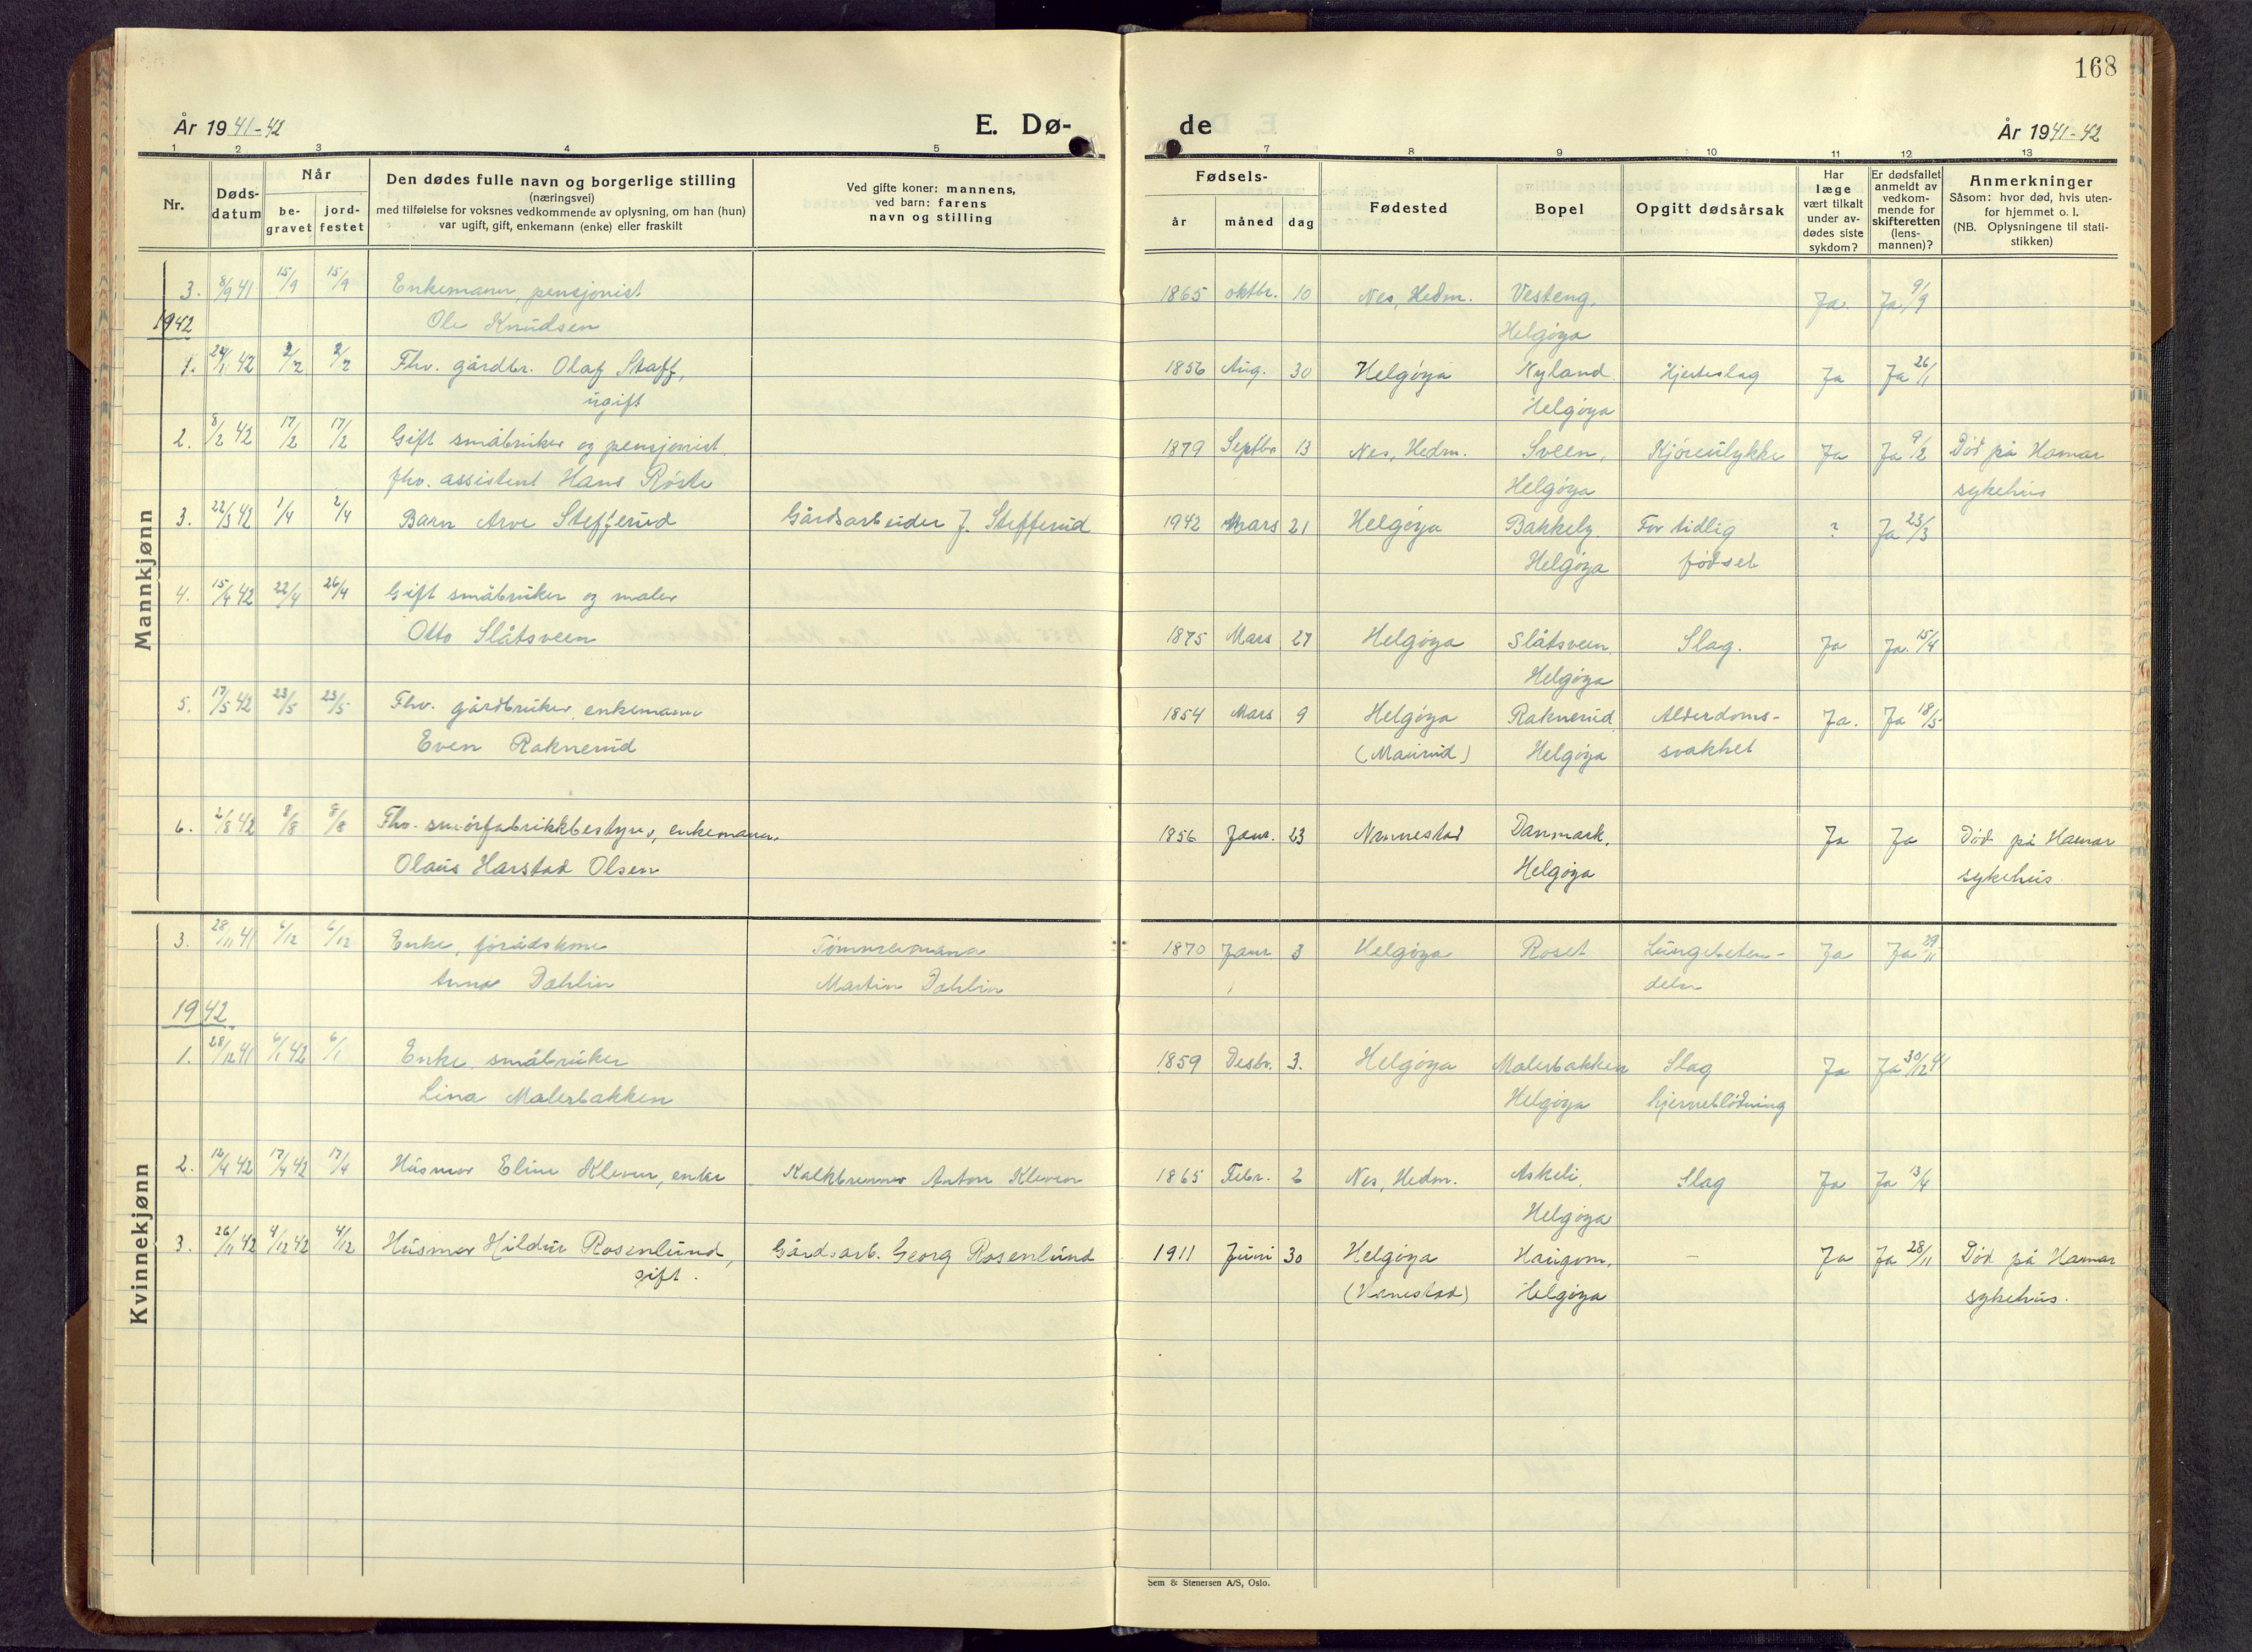 168
År 1941-42
E. Dø-
de
År 1941-42
1 2 3 4 5 7 8 9 10 11 12 13
Nr.
Døds-
datum
Når
be-
gravet
jord-
festet
Den dødes fulle navn og borgerlige stilling
(næringsvei)
med tilføielse for voksnes vedkommende av oplysning, om han (hun)
var ugift, gift, enkemann (enke) eller fraskilt
Ved gifte koner: mannens,
ved barn: farens
navn og stilling
Fødsels-
år måned dag
Fødested
Bopel
Opgitt dødsårsak
Har
læge
vært tilkalt
under av-
dødes siste
sykdom?
Er dødsfallet
anmeldt av
vedkom-
mende for
skifteretten
(lens-
mannen)?
Anmerkninger
Såsom: hvor død, hvis uten-
for hjemmet o. l.
(NB. Oplysningene til stati-
stikken)
Mannkjønn
3. 8/9 41 15/9 15/9 Enkemann, pensjonist 1865 oktbr. 10 Nes, Hedm. Vesteng, Ja. Ja 9/9
1942 Ole Knudsen Helgøya
1. 24/1 42 2/2 2/2 Fhv. gårdbr. Olaf Staff, 1856 Aug. 30 Helgøya Nyland Hjerteslag Ja Ja 26/1
ugift Helgøya
2. 8/2 42 17/2 17/2 Gift småbruker og pensjonist. 1879 Septbr 13 Nes, Hedm. Sveen, Kjøreulykke Ja Ja 9/2 Død på Hamar
fhv. assistent Hans Røste Helgøya sykehus
3. 22/3 42 1/4 2/4 Barn Arve Stefferud Gårdsarbeider J. Stefferud 1942 Mars 21 Helgøya Bakkely. For tidlig ? Ja 23/3
Helgøya fødsel
4. 15/4 42 22/4 26/4 Gift småbruker og maler
Otto Slåtsveen 1875 Mars 27 Helgøya Slåtsveen. Slag. Ja Ja. 15/4
Helgøya
5. 17/5 42 23/5 23/5 Fhv. gårdbruker, enkemann 1854 Mars 9 Helgøya Raknerud Alderdoms- Ja. Ja 18/5
Even Raknerud (Maurud) Helgøya svakhet
6. 2/8 42 8/8 8/8 Fhv. smørfabrikkbestyrer, enkemann. 1856 Janr. 23 Nannestad Danmark, Ja Ja Død på Hamar
Olaus Harstad Olsen Helgøya sykehus.
Kvinnekjønn
3. 28/11 41 6/12 6/12 Enke, forådskone Tømmermann 1870 Janr 3 Helgøya Roset Lungebeten- Ja Ja 29/11
Anna Dahlin Martin Dahlin delse
1942
1. 28/12 41 6/1 42 6/1 Enke, småbruker 1859 Desbr. 3. Helgøya Malerbakken Slag Ja Ja 30/12 41
Lina Malerbakken Helgøya hjerneblødning
2. 12/4 42 17/4 42 17/4 Husmor Eline Kleven, enke Kalkbrenner Anton Kleven 1865 Febr. 2 Nes, Hedm. Askeli, Slag Ja Ja 13/4
Helgøya
3. 26/11 42 4/12 42 4/12 Husmor Hildur Rosenlund, Gårdsarb. Georg Rosenlund 1911 Juni 30 Helgøya Haugom, - Ja Ja 28/11 Død på Hamar
gift. Helgøya sykehus.
Sem & Stenersen A/S, Oslo.